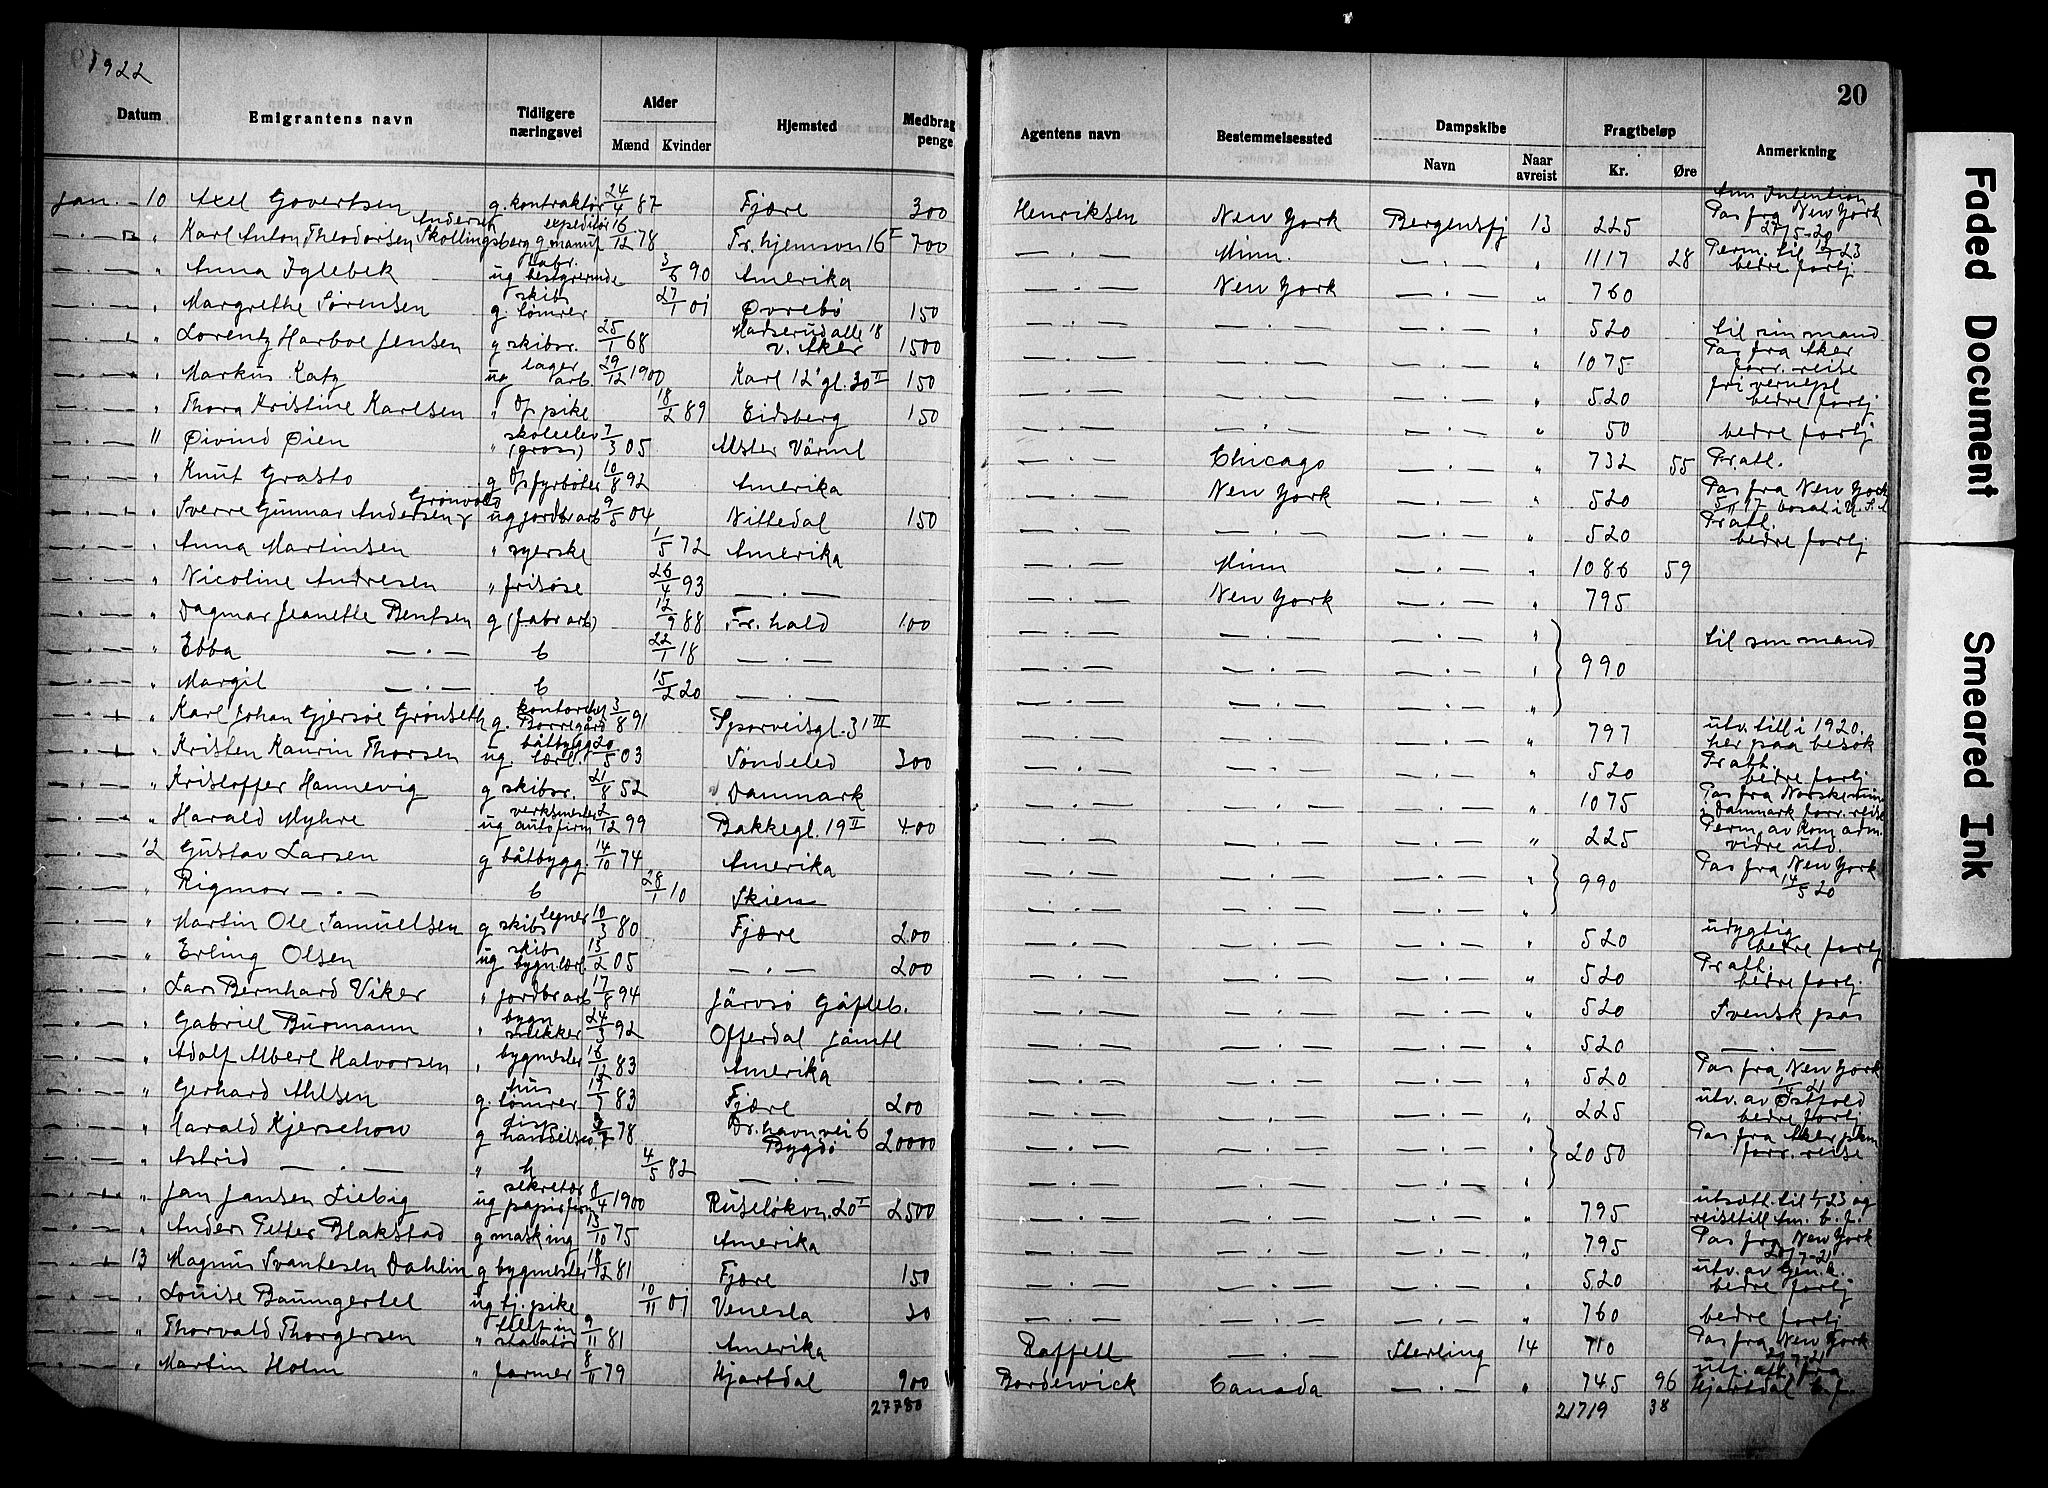 1922
20
Datum Emigrantens navn Tidligere næringsvei Alder Mænd Kvinder Hjemsted Medbrag penge Agentens navn Bestemmelsessted Dampskibe Navn Naar avreist Fragtbeløp Kr. Øre Anmerkning
Jan. 10 Axel Govertsen g. kontraktør 24/4 87 Fjære 300 Henriksen New York Bergensfj 13 225 Pas fra New York 27/5-20
" Karl Anton Theodorsen Skollingsberg g manuf 16/12 78 Fr. hjemsvn 16 I 700 — . — Minn. — . — " 1117 28 Perm. til bedre forhj
" Anna Iglebek ug bestyrerinde 3/6 90 Amerika — . — New York — . — " 760
" Margrethe Sørensen g skibs tømrer 27/1 01 Øvrebø 150 — . — — . — — . — " 520 til sin mand
" Lorentz Harboe Jensen g skibsr. 25/1 68 Madserud alle 18 v. Aker 1500 — . — — . — — . — " 1075 Pas fra Aker forr. reise
" Markus Katz ug lager arb. 29/12 1900 Karl 12' gl. 30 II 150 — . — — . — — . — " 520 fri vernepl bedre forhj
" Thora Kristine Karlsen " pike 18/2 89 Eidsberg 150 — . — — . — — . — " 50 bedre forhj
" Øivind Øien " skoleelev (gross) 7/3 05 Alster Värml — . — Chicago — . — " 732 55 Fratl.
" Knut Grasto g fyrbøter 10/8 92 Amerika — . — New York — . — " 520 Pas fra New York 5/11 17 bosat i U.S.A
" Sverre Gunnar Andersen Grønvold ug jordbr arb 9/5 04 Nittedal 150 — . — — . — — . — " 520 Fratl. bedre forhj
" Anna Martinsen " syerske 1/5 72 Amerika — . — Minn — . — " 1086 59
" Nicoline Andresen " frisøse 26/4 93 — . — — . — New York — . — " 795
" Dagmar Jeanette Bentsen g (fabr arb) 12/9 88 Fr. hald 100 — . — — . — — . — " til sin mand
" Ebba — . — b 22/1 18 — . — — . — — . — — . — " 990
" Margit — . — b 15/2 20 — . — — . — — . — — . — "
" Karl Johan Gjersøe Grønseth g. kontorchef Borregård 3/8 91 Sporveisgl. 31 III — . — — . — — . — " 797 utv. till i 1920. her paa besøk
" Kristen Kaurin Thorsen ug. båtbygg lærl. 20/5 03 Søndeled 300 — . — — . — — . — " 520 Fratl. bedre forhj
" Kristoffer Hannevig g skibsr. 21/8 52 Danmark — . — — . — — . — " 1075 Pas fra Norske min i Danmark forr. reise
" Harald Myhre ug verksmester autofirm 2/12 99 Bakkegl. 19 II 400 — . — — . — — . — " 225 Perm. av Kom adm. vidre utd.
12 Gustav Larsen g båtbygg. 14/10 74 Amerika — . — — . — — . — " 990 Pas fra New York 14/5 20
" Rigmor — . — b 28/1 10 Skien — . — — . — — . — "
" Martin Ole Samuelsen g skibs tegner 10/3 80 Fjære 200 — . — — . — — . — " 520 udygtig bedre forhj
" Erling Olsen ug skibs bygn lærl 13/2 05 — . — 200 — . — — . — — . — " 520 Fratl. bedre forhj.
" Lars Bernhard Viker " jordbr arb 17/8 94 Järvsö Gäfleb. — . — — . — — . — " 520 Svensk pas
" Gabriel Burmann " bygn snekker 24/3 92 Offerdal Jämtl — . — — . — — . — " 520 — . —
" Adolf Albert Halvorsen " bygmester 16/12 83 Amerika — . — — . — — . — " 520 Pas fra New York 1/4 21
" Gerhard Ahlsen g. hus tømrer 83 Fjære 200 — . — — . — — . — " 225 utv. av Østfold bedre forhj
" Harald Kjerschow g disp handelsv. 78 Dr. havnvei 6 Bygdø 20000 — . — — . — — . — " 2050 Pas fra Aker pkm forr. reise
" Astrid — . — " h 4/5 82 — . — — . — — . — — . — "
" Jan Jansen Liebig ug sekretær papirfirm 8/4 1900 Ruseløkvn. 20 I 2500 — . — — . — — . — " 795 utsætt. til 1/1 23 og reisetill Am. b. f.
" Anders Petter Blakstad g mask ing 13/10 75 Amerika — . — — . — — . — " 795 Pas fra New York 20/7-21
13 Magnus Svantesen Dahlin g bygmester 18/12 81 Fjære 150 — . — — . — — . — " 520 utv. av Gen.k. bedre forhj
" Louise Baumgertel ug tj. pike 10/11 01 Venesla 30 — . — — . — — . — " 760 bedre forhj
" Thorvald Thorgersen " telef in stalatør 9/11 81 Amerika Raffell — . — Sterling 14 710 Pas fra New York 21/7-21
" Martin Holm " farmer 8/11 79 Hjartdal 900 Bordewick Canada — . — " 745 96 utf. att. fra Hjartdal b. f.
27780 21719 38
Faded Document
Smeared Ink